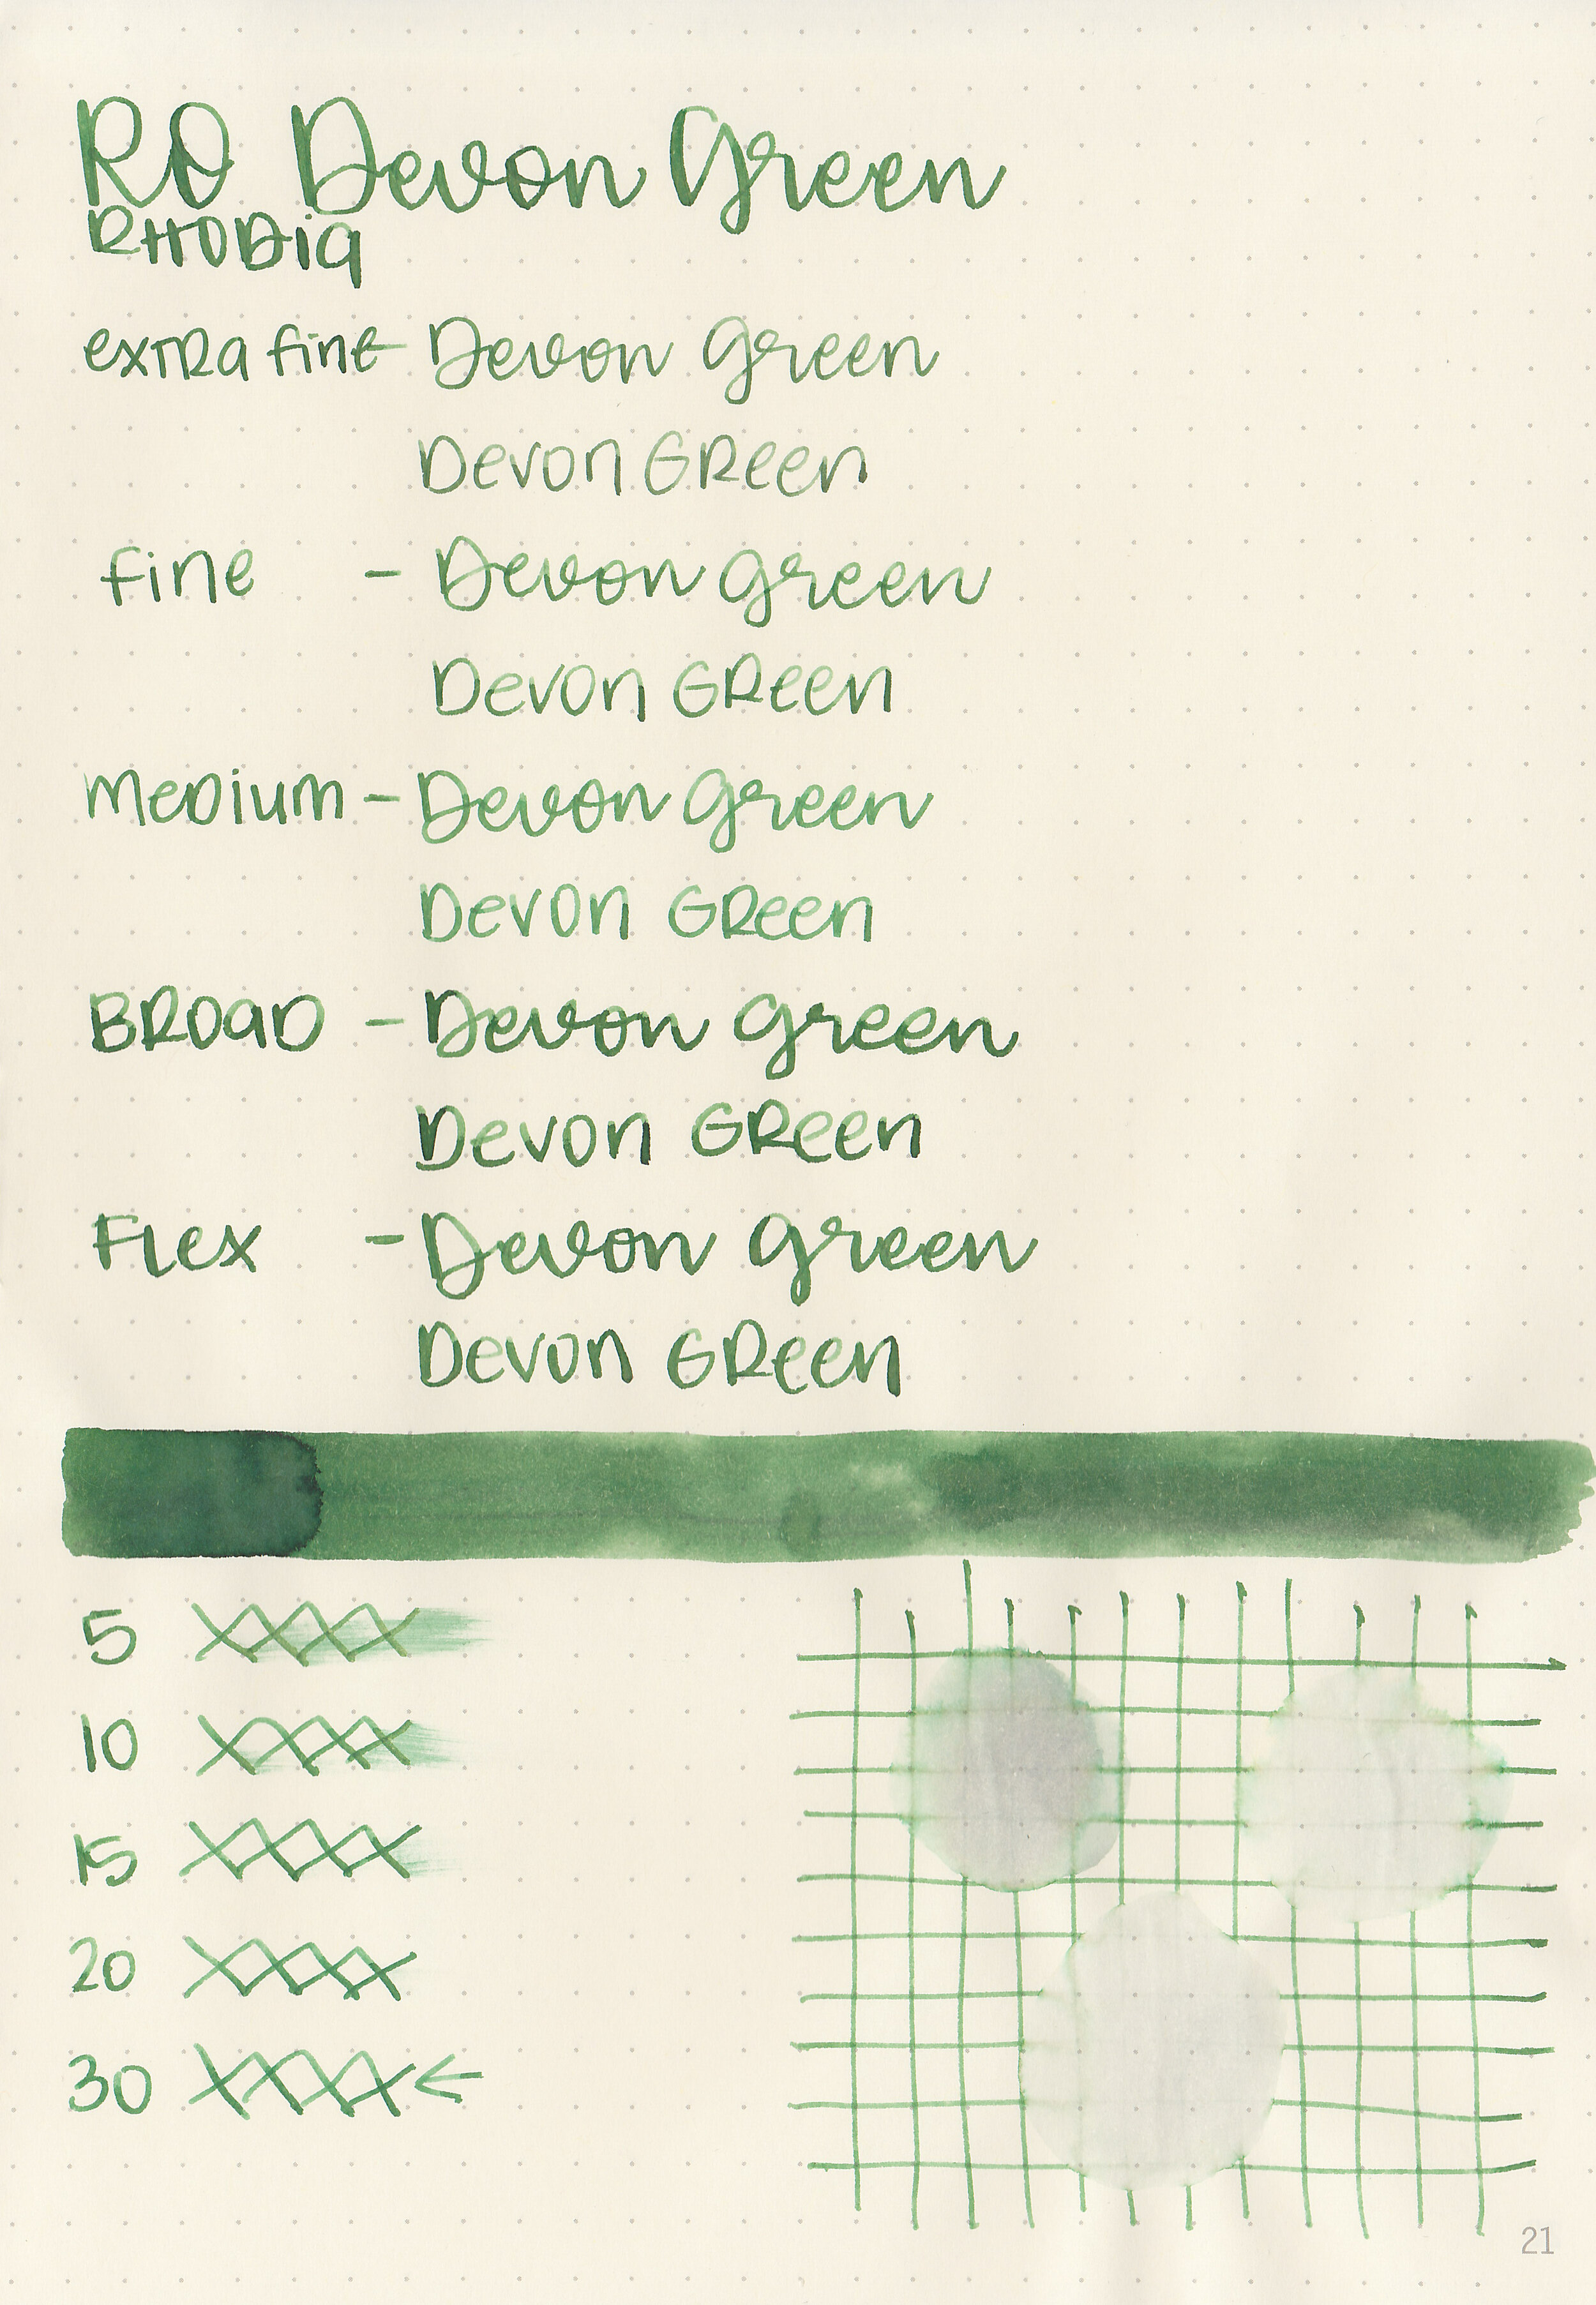 RO Devon Green
RHODia
exTRa fine - Devon Green
Devon GReen
fine - Devon Green
Devon GReen
MeDium - Devon Green
Devon GReen
BROaD - Devon Green
Devon GReen
FLex - Devon Green
Devon GReen
5
10
15
20
30 ←
21